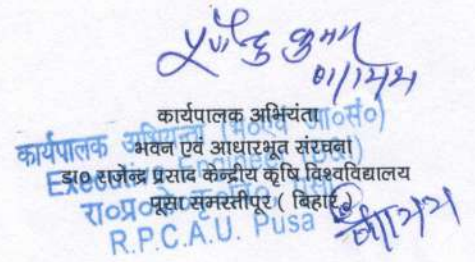 कुमार
कार्यपालक अभियंता
भवन एवं आधारभूत संरचना
डा० राजेन्द्र प्रसाद केन्द्रीय कृषि विश्वविद्यालय
पूसा समस्तीपूर ( बिहार )
कार्यपालक अभियन्ता (भ०एवं आ०सं०)
Executive Engineer
रा०प्र०के०कृ०वि० पूसा
R.P.C.A.U. Pusa